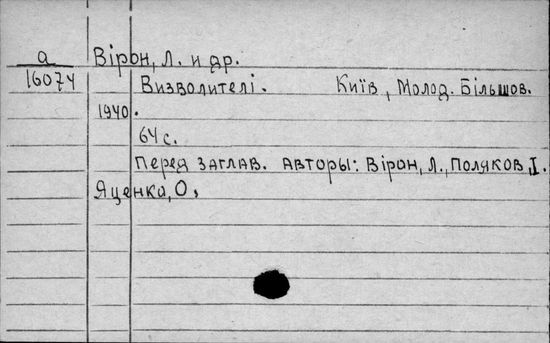 а Вірон, Л. и др.
16074 Визволителі. Київ, Молод. Більшов.
1940.
64 с.
Перед заглав. авторы: Вірон, Л., Поляков, І.
Яценко, О.